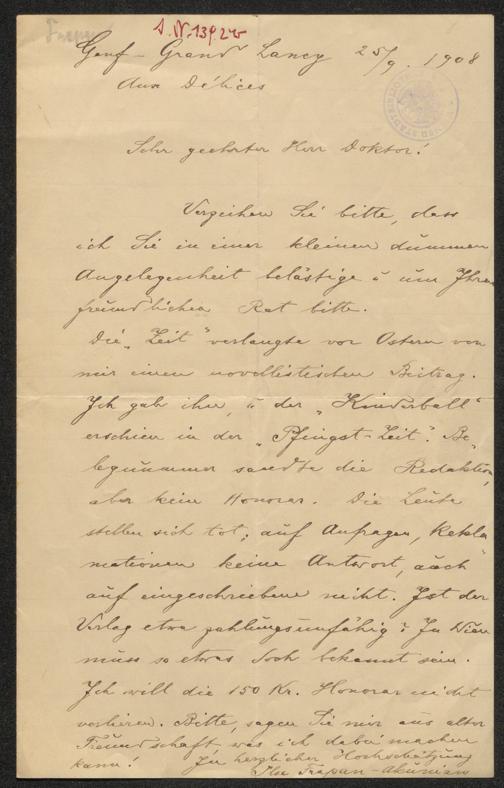 I.N. 139.220
Genf - Grand Lancy 25/9. 1908
Aux Délices
Sehr geehrter Herr Doktor!
Verzeihen Sie bitte, dass
ich Sie in einer kleinen dummen
Angelegenheit belästige u um Ihren
freundlichen Rat bitte.
Die „Zeit" verlangte vor Ostern von
mir einen novellistischen Beitrag.
Ich gab ihn, u der „Kinderball"
erschien in der „Pfingst-Zeit". Be-
legnummer sandte die Redaktion,
aber kein Honorar. Die Leute
stellen sich tot; auf Anfragen, Rekla
mationen keine Antwort, auch
auf eingeschriebene nicht. Ist der
Verlag etwa zahlungsunfähig? In Wien
muss so etwas doch bekannt sein.
Ich will die 150 Kr. Honorar nicht
verlieren. Bitte, sagen Sie mir aus alter
Freundschaft, was ich dabei machen
kann! In herzlicher Hochschätzung
Ilse Frapan-Akunian